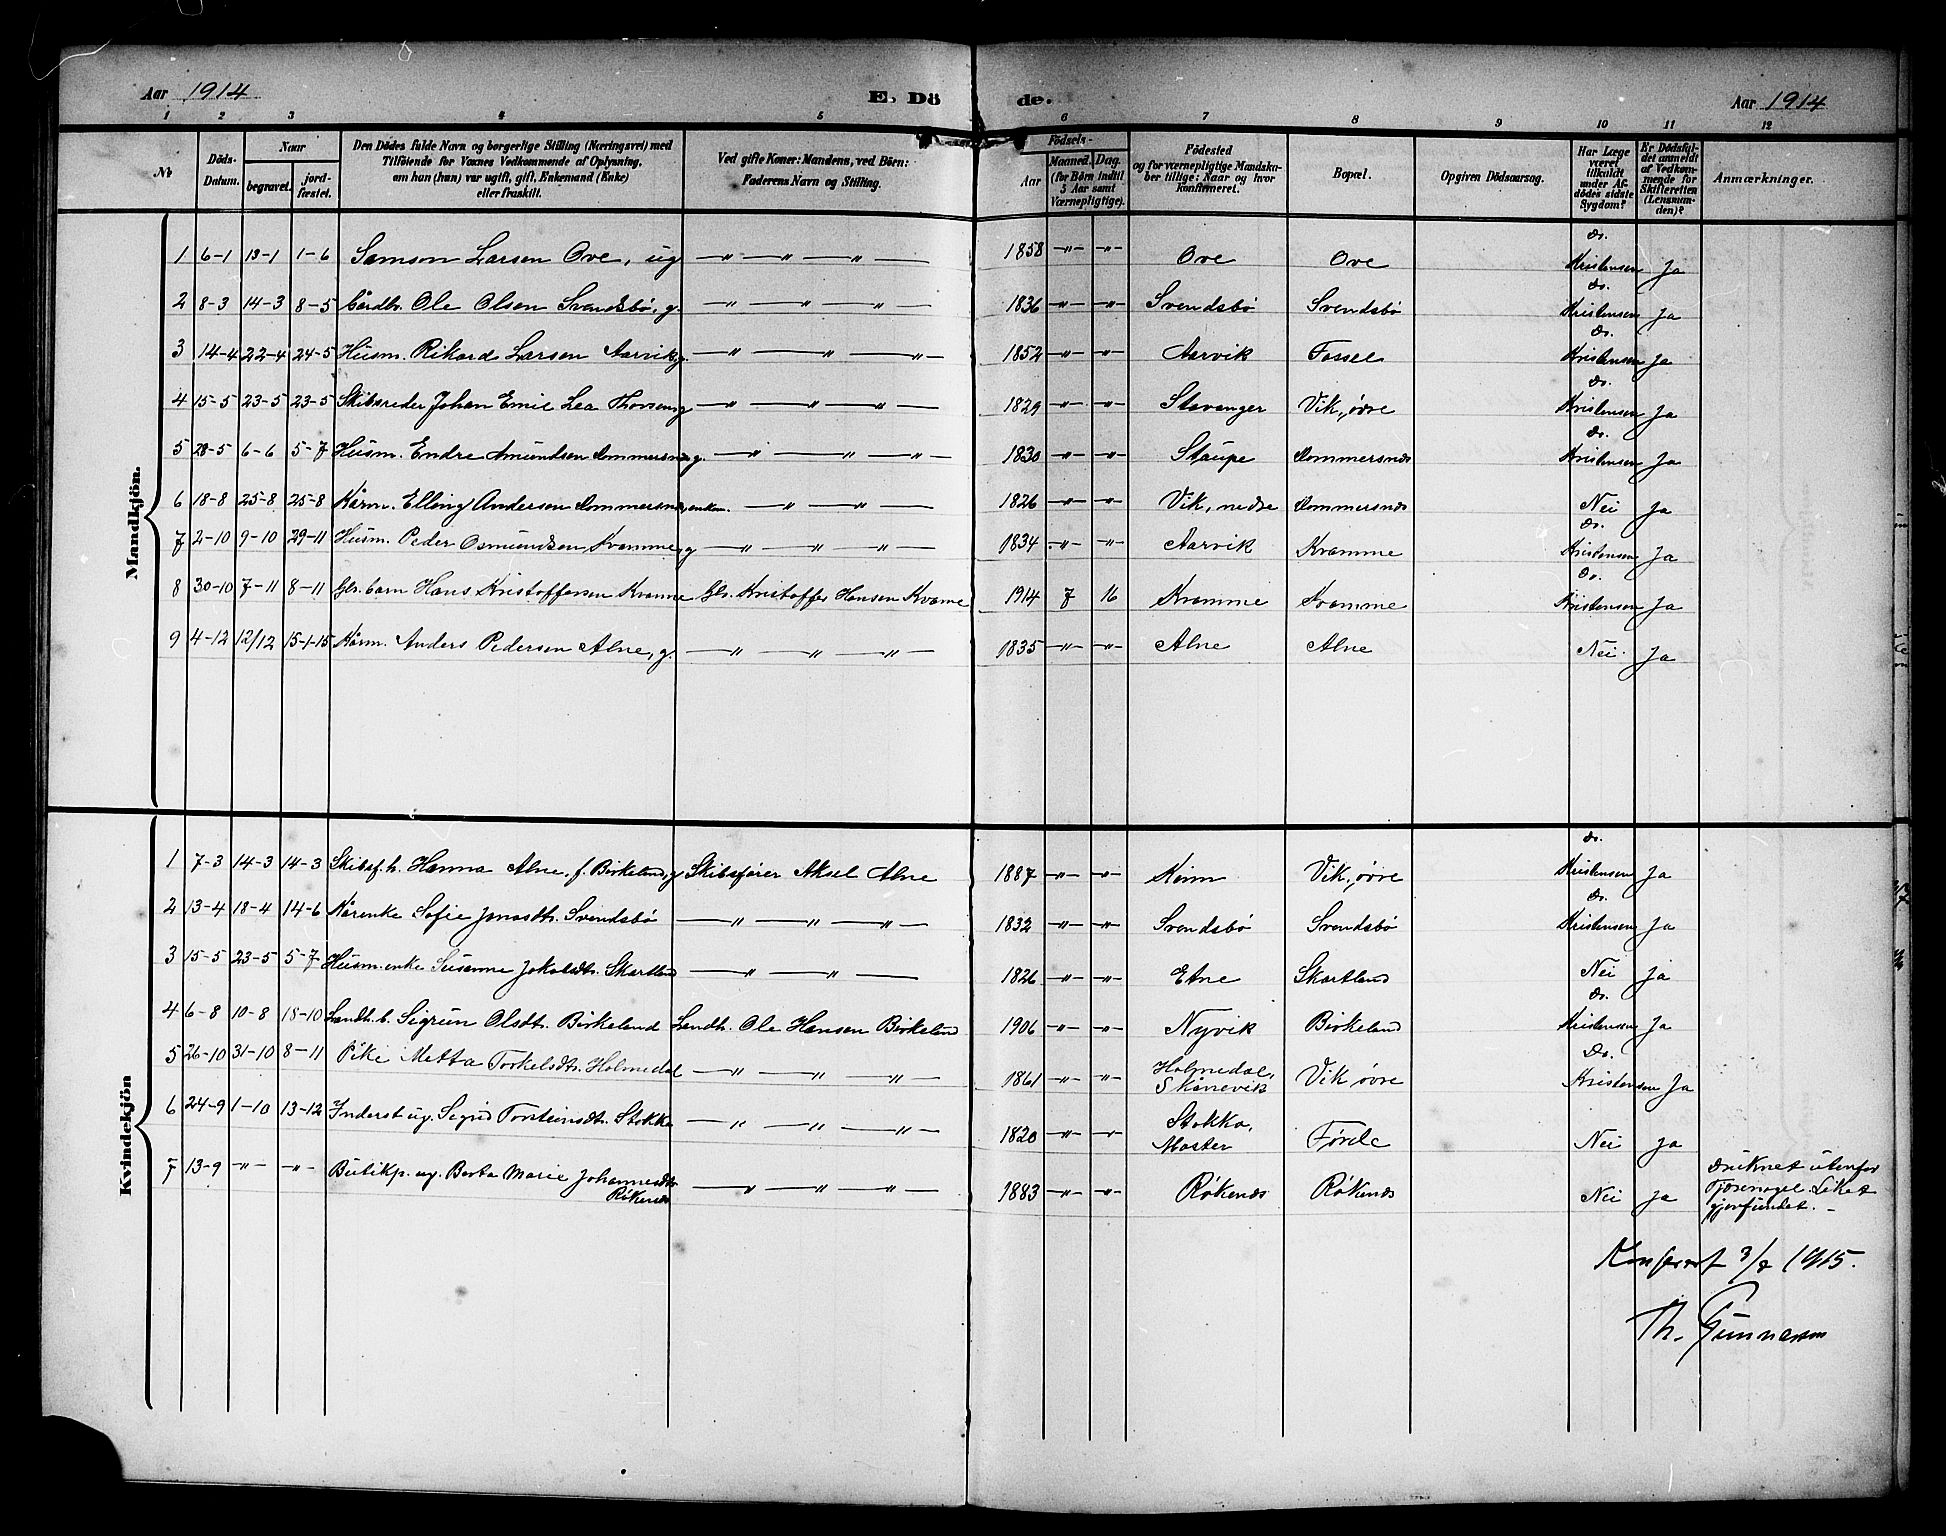 Aar 1914 E. Dö de. Aar 1914
1 2 3 4 5 6 7 8 9 10 11 12
No
Döds-Datum.
Naar
begravet.
jord-fæstet.
Den Dödes fulde Navn og borgerlige Stilling (Næringsvei) med
Tilföiende for Voxnes Vedkommende af Oplysning,
om hun (han) var ugift, gift, Enkemand (Enke)
eller fraskilt.
Ved gifte Koner: Mandens, ved Börn:
Faderens Navn og Stilling.
Födsels-
Aar
Maaned. Dag.
(for Börn indtil
5 Aar samt
Værnepligtige).
Födested
og for værnepligtige Mandska-
ber tillige: Naar og hvor
konfirmeret.
Bopæl.
Opgiven Dödsaarsag.
Har Læge
været
tilkaldt
under Af-
dödes sidste
Sygdom?
Er Dödsfal-
det anmeldt
af Vedkom-
mende for
Skifteretten
(Lensman-
den)?
Anmærkninger.
Mandkjön.
1 6-1 13-1 1-6 Samson Larsen Ove, ug —"—"—"— 1858 -"- -"- Ove Ove Dr. Kristensen Ja
2 8-3 14-3 8-5 Gårdbr. Ole Olsen Svendsbö, g. —"—"—"— 1836 -"- -"- Svendsbö Svendsbö Dr. Kristensen Ja
3 14-4 22-4 24-5 Husm. Rikard Larsen Aarvik, g. —"—"—"— 1852 -"- -"- Aarvik Fosse Dr. Kristensen Ja
4 15-5 23-5 23-5 Skibsreder Johan Emil Lea Thorsen g —"—"—"— 1829 -"- -"- Stavanger Vik, övre Dr. Kristensen Ja
5 28-5 6-6 5-7 Husm. Endre Amundsen Dommersnes g. —"—"—"— 1830 -"- -"- Staupe Dommersnes Dr. Kristensen Ja
6 18-8 25-8 25-8 Kårm. Elling Andersen Dommersnes, enkem. —"—"— 1826 -"- -"- Vik, nedre Dommersnes Nei Ja
7 2-10 9-10 29-11 Husm. Peder Osmundsen Kvamme, g —"—"—"— 1834 -"- -"- Aarvik Kvamme Dr. Kristensen Ja
8 30-10 7-11 8-11 Gbr. barn Hans Kristoffersen Kvamme Gbr. Kristoffer Hansen Kvame 1914 7 16 Kvamme Kvamme Dr. Kristensen Ja
9 4-12 12/12 15-1-15 Kårm. Anders Pedersen Alne, g. —"—"—"— 1835 -"- -"- Alne Alne Nei Ja
Kvindekjön
1 7-3 14-3 14-3 Skibsf. h. Hanna Alne, f. Birkeland, g Skibsförer Aksel Alne 1887 -"- -"- Vik, övre Dr. Kristensen Ja
2 13-4 18-4 14-6 Kårenke Sofie Jonasdtr. Svendsbö —"—"—"— 1832 -"- -"- Svendsbö Svendsbö Dr. Kristensen Ja
3 15-5 23-5 5-7 Husm. enke Susanne Jakobsdtr. Skartland —"—"—"— 1826 -"- -"- Etne Skartland Nei Ja
4 6-8 10-8 18-10 Landh. b. Sigrun Olsdtr. Birkeland Landh. Ole Hansen Birkeland 1906 -"- -"- Nyvik Birkeland Dr. Kristensen Ja
5 26-10 31-10 8-11 Pike Metta Torkelsdtr. Holmedal —"—"—"— 1861 -"- -"- Holmedal, Skånevik Vik, övre Dr. Kristensen Ja
6 24-9 1-10 13-12 Inderst ug. Sigrid Torsteinsdtr. Stokke —"—"—"— 1820 -"- -"- Stokka, Moster Förde Nei Ja
7 13-9 -"- -"- Butikp. ug. Berta Marie Johannesdtr.
Rökenes —"—"—"— 1883 -"- -"- Rökenes Rökenes Nei Ja druknet utenfor
Tjernagel. Liket
gjenfundet.
Konferert 3/2 1915.
Th. Gunnarson